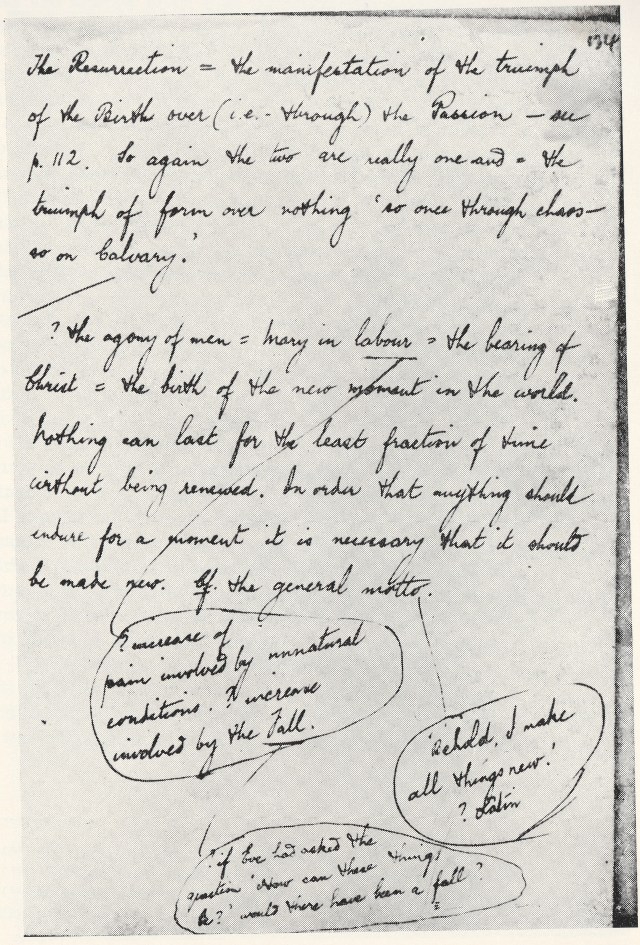 134
The Resurrection = the manifestation of the triumph
of the Birth over (i.e. - through) the Passion — see
p. 112. So again the two are really one and = the
triumph of form over nothing 'so once through chaos—
so on Calvary.'
? the agony of men = Mary in labour = the bearing of
Christ = the birth of the new moment in the world.
Nothing can last for the least fraction of time
without being renewed. In order that anything should
endure for a moment it is necessary that it should
be made new. Cf. the general motto.
? increase of
pain involved by unnatural
conditions. ? increase
involved by the Fall.
'Behold, I make
all things new.'
? Latin
? if Eve had asked the
question 'How can these things
be?' would there have been a fall?